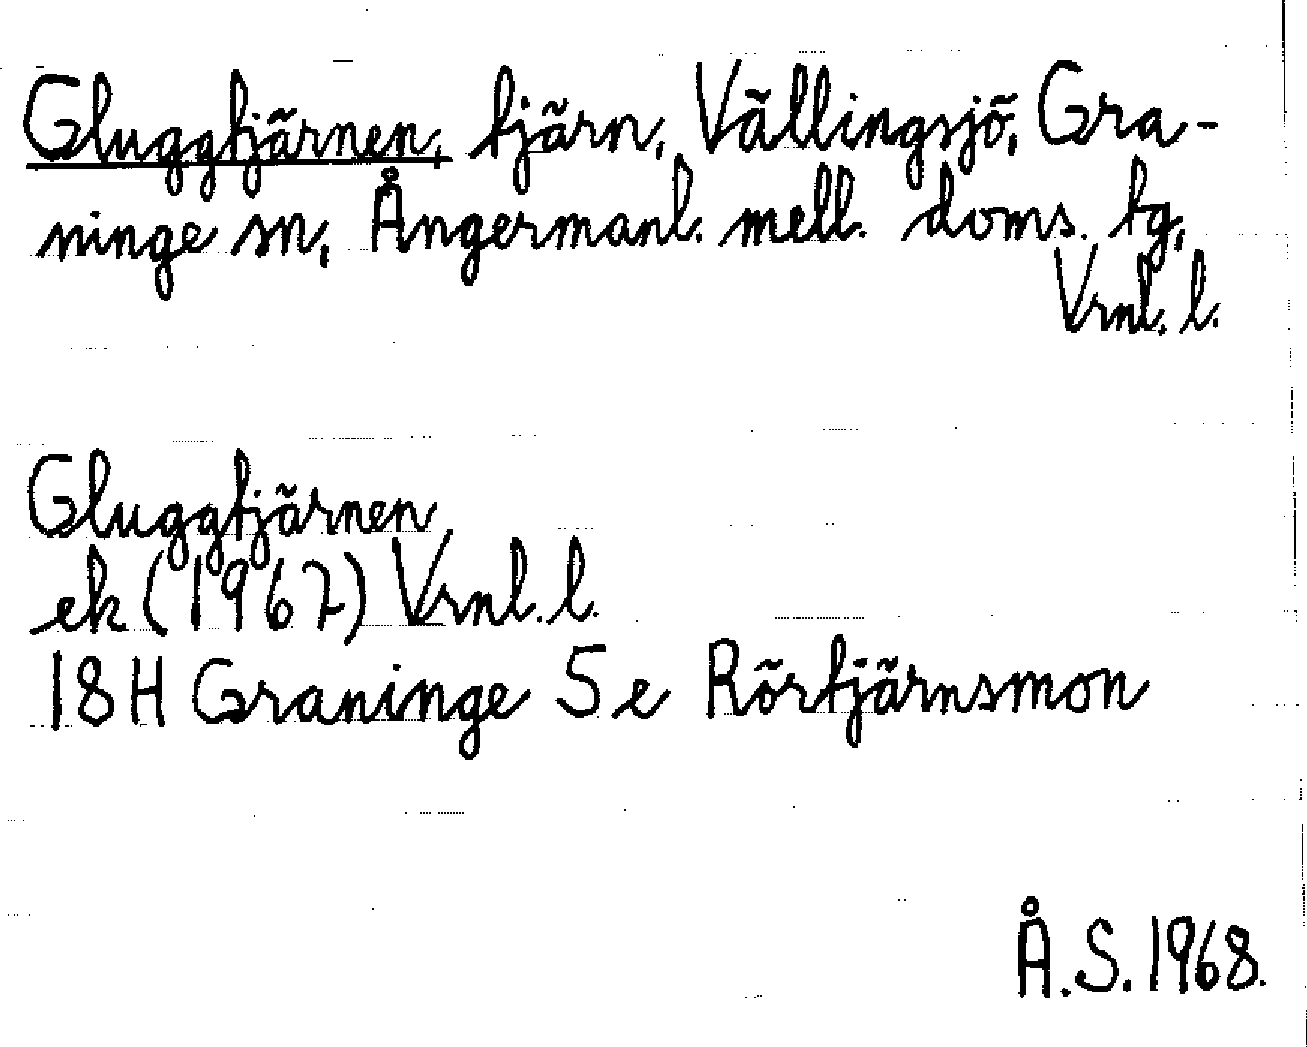 Gluggtjärnen, tjärn, Vällingsjö, Gra-
ninge sn, Ångermanl. mell. doms. tg,
Vrnl. l.
Gluggtjärnen
ek (1967) Vrnl. l.
18H Graninge 5 e Rörtjärnsmon
Å.S. 1968.